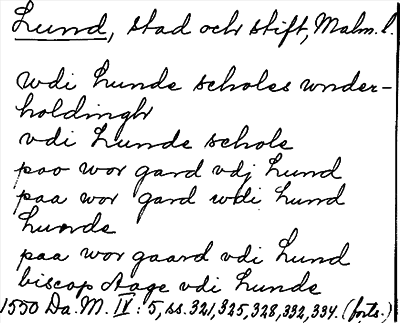 Lund, stad och stift, Malm. l.
wdi Lunde scholes wnder-
holdinghr
vdi Lunde schole
paa wor gard vdj Lund
paa wor gard wdi Lund
Lunde
paa wor gaard vdi Lund
biscop Aage vdi Lunde
1550 Da. M. IV: 5, ss. 321, 325, 328, 332, 334. (forts.)